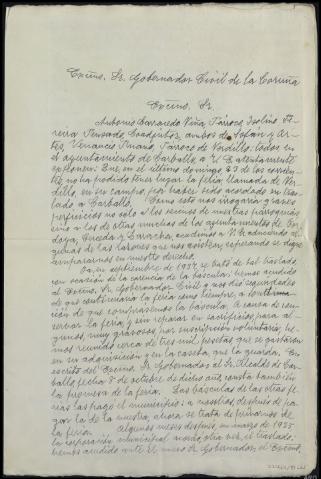 Excmo. Sr. Gobernador Civil de la Coruña
Excmo. Sr.
Antonio Carracedo Viña, Párroco, Isolino
Pensado, Coadjutor, ambos de Sofán y Ar-
tes, Venancio Pinario, Párroco de Verdillo: todos en
el ayuntamiento de Carballo, a V. E. atentamente
exponen: Que, en el último domingo, 23 de los corrien-
tes, no ha podido tener lugar la feria llamada de Ver-
dillo, en su campo, por haber sido acordado su tras-
lado a Carballo. Como esto nos irrogaría graves
perjuicios no solo a los vecinos de nuestras parroquias,
sino a los de otras muchas de los ayuntamientos de
Cerceda y Laracha, acudimos a V. E. aduciendo al-
gunas de las razones que nos asisten, esperando se digne
ampararnos en nuestro derecho.
Ya, en septiembre de 1934, se trató de tal traslado,
con ocasión de la carencia de la báscula: hemos acudido
al Excmo. Sr. Gobernador Civil y nos dió seguridades
de que continuaría la feria como siempre, a
ción de que comprásemos la báscula. A causa de con-
servar la feria y sin reparar en sacrificios para al-
gunos, muy gravosos, por suscripción voluntaria, he-
mos reunido cerca de tres mil pesetas, que se gastaron
en su adquisición y en la caseta, que la guarda. En
escrito del Excmo. Sr. Gobernador al Sr. Alcalde de Car-
ballo, fecha 8 de octubre de dicho año, consta también
la promesa de la feria. Las básculas de las otras fe-
rias las pagó el municipio: a nosotros, después de pa-
gar la de la nuestra, ahora se trata de privarnos de
la feria. Algunos meses después, en marzo de 1935
la corporación municipal acordó, otra vez, el traslado.
hemos acudido ante el nuevo Sr. Gobernador, el Excmo.